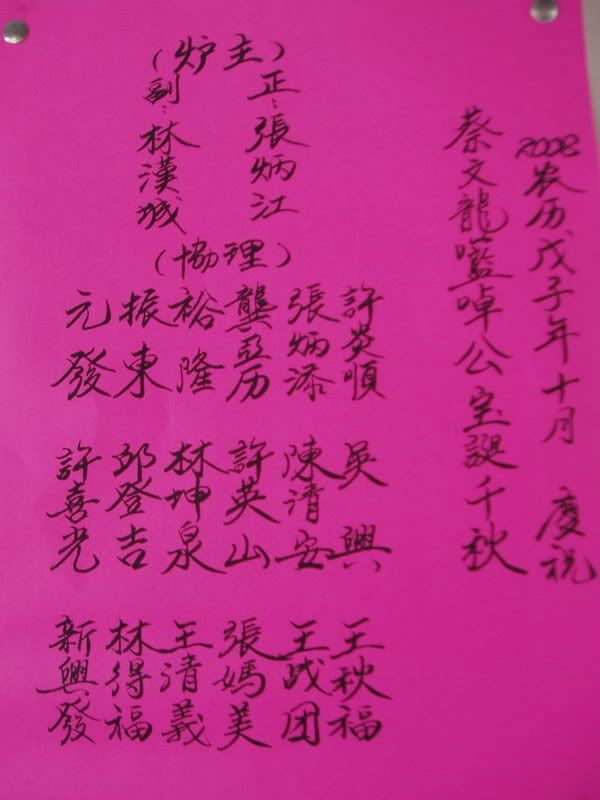 2008农历戊子年十月 慶祝
蔡文龍噬啅公宝誕千秋
(炉主)
正:張炳江
副:林漢城
(協理)
許炎順
張炳添
龔亞历
裕隆
振東
元發
吳興
陳清安
許英山
林坤泉
邱登吉
許喜光
王秋福
王戊团
張媽美
王清義
林得福
新興發